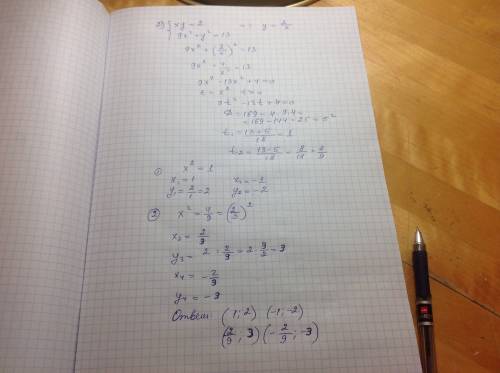 2) { xy = 2 => y = 2/x
9x² + y² = 13
9x² + (2/x)² = 13
9x² + 4/x² = 13
9x⁴ - 13x² + 4 = 0
t = x²
9t² - 13t + 4 = 0
D = 169 - 4·9·4 =
= 169 - 144 = 25 = 5²
t₁ = (13+5)/18 = 1
t₂ = (13-5)/18 = 8/18 = 4/9
① x² = 1
x₁ = 1 x₂ = -1
y₁ = 2/1 = 2 y₂ = -2
② x² = 4/9 = (2/3)²
x₃ = 2/9
y₃ = 2 : 2/9 = 2 · 9/2 = 3
x₄ = -2/9
y₄ = -3
Ответ: (1; 2) (-1; -2)
(2/9; 3) (-2/9; -3)